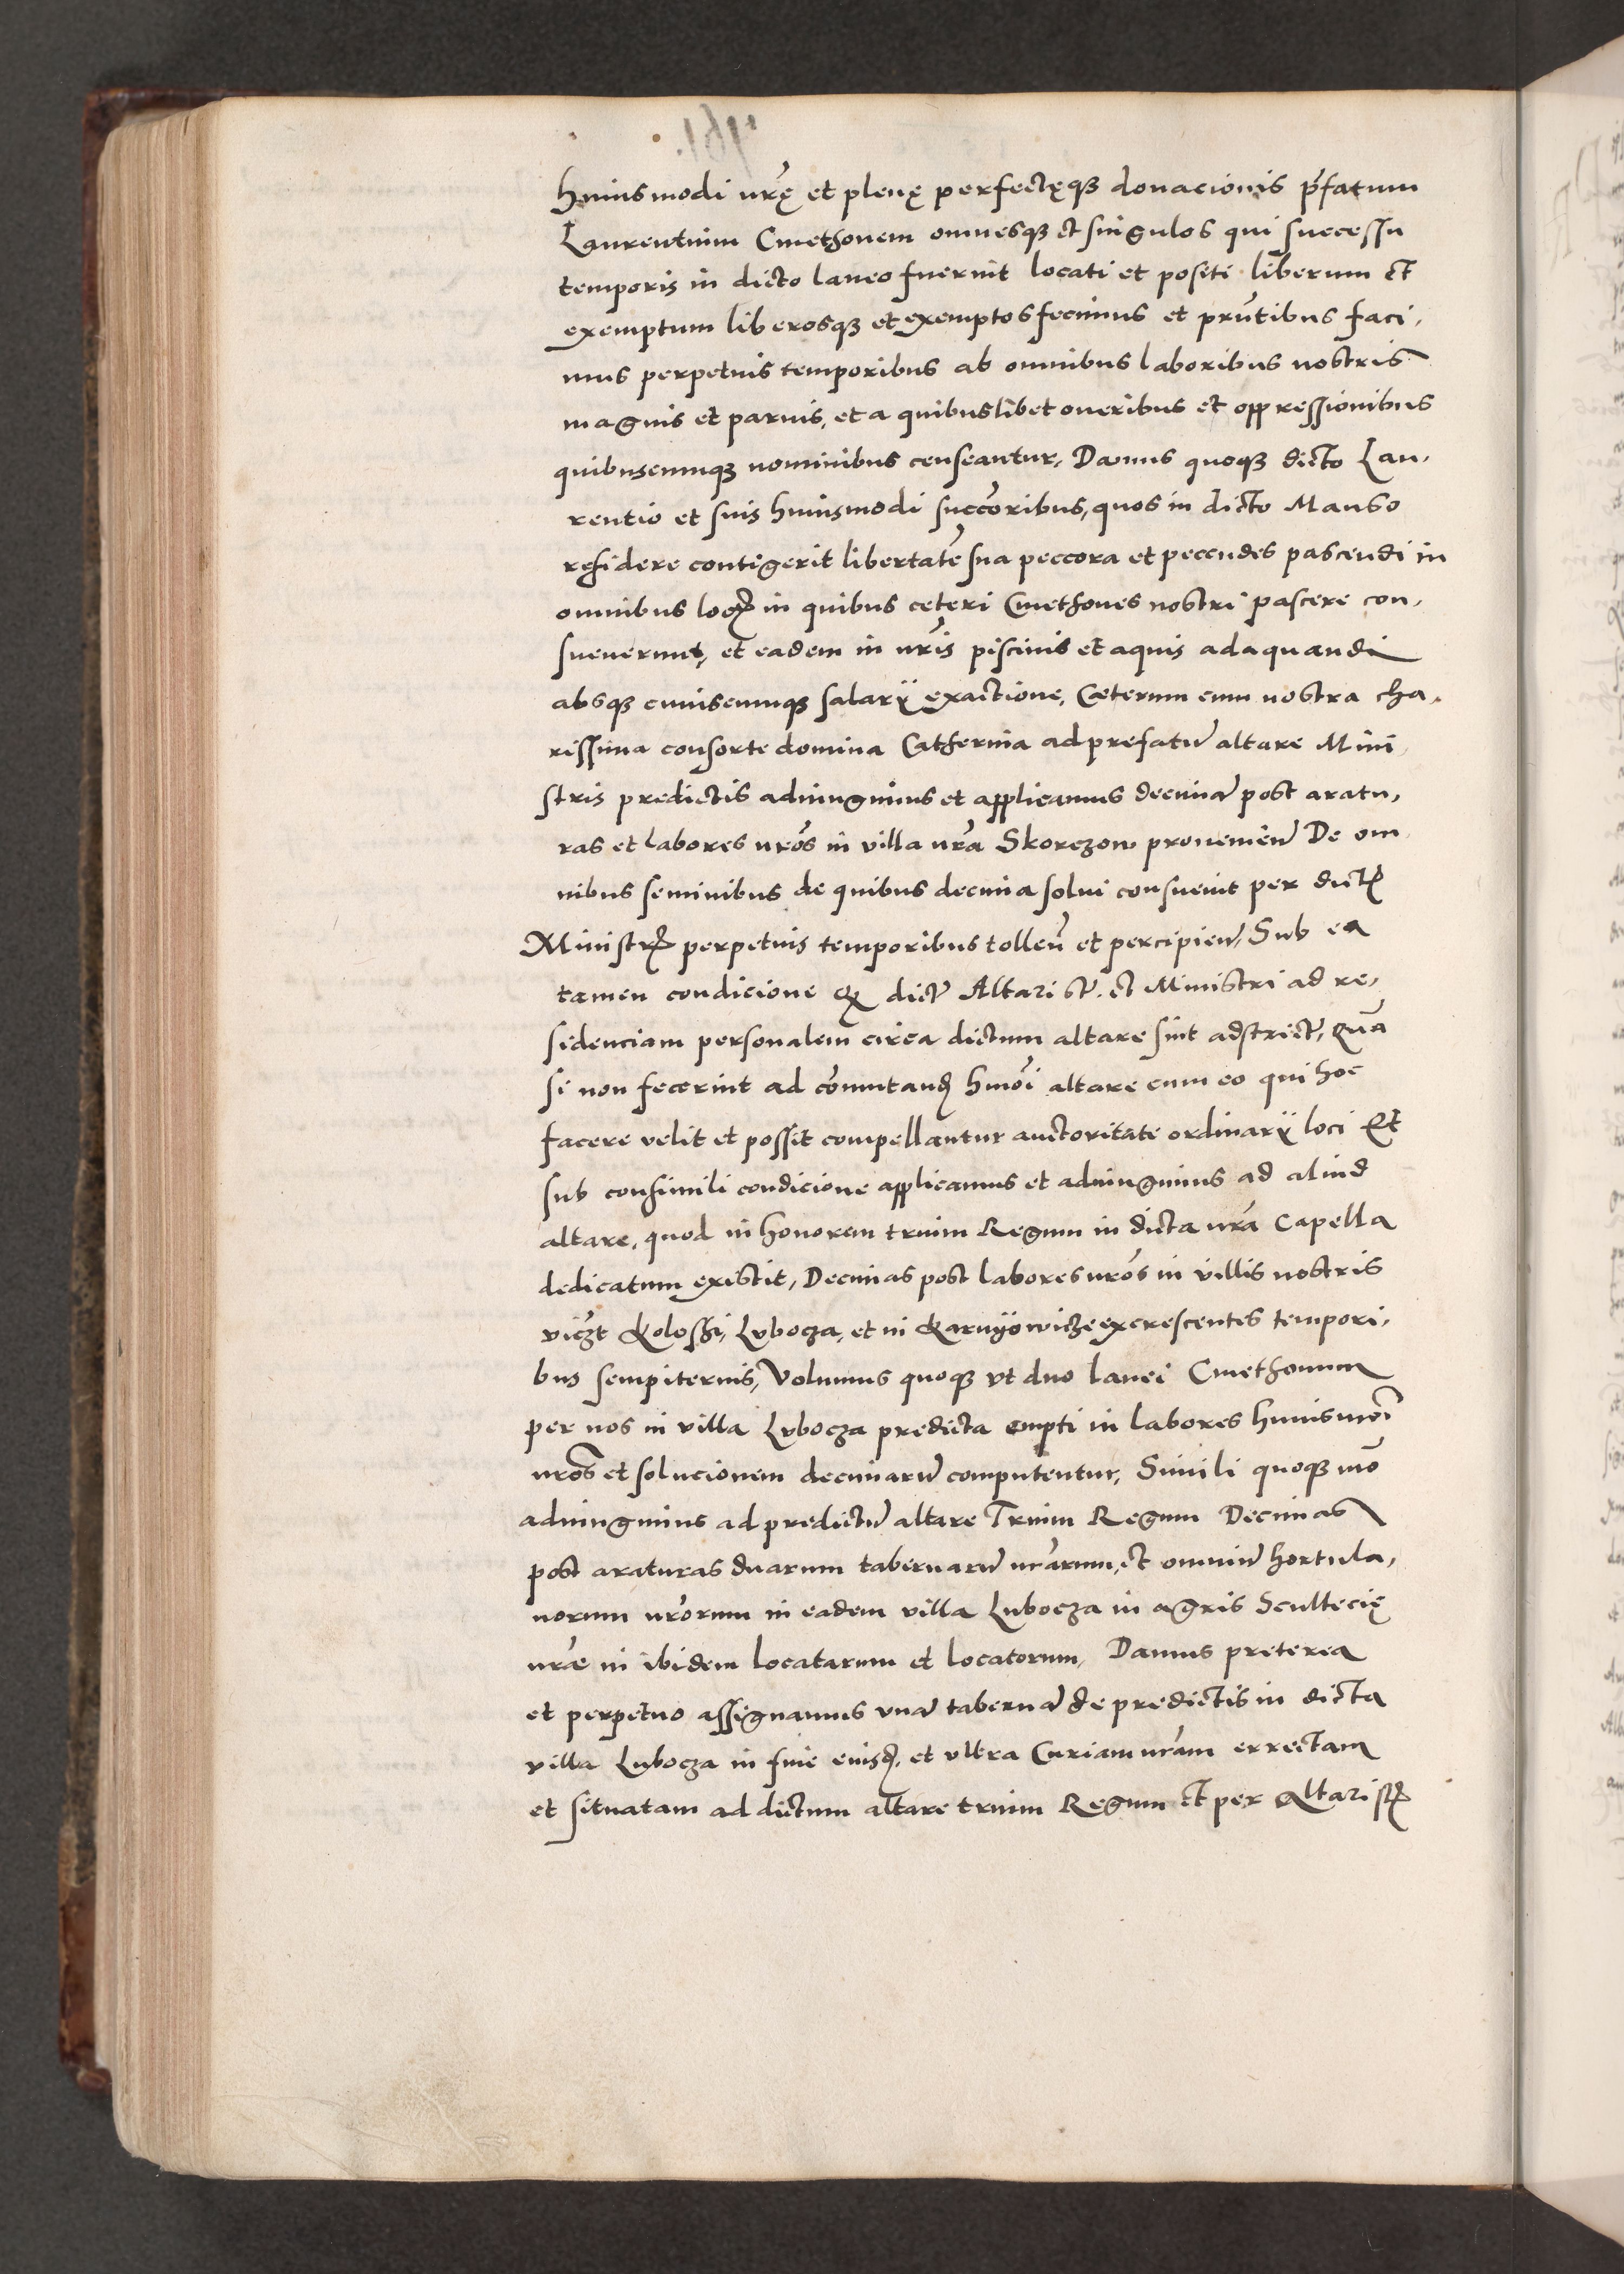 huiusmodi nrę et plenę perfectęq3 donacionis p̃fatum
Laurentium Cmethonem omnesq3 et singulos qui successu
temporis in dicto laneo fuerint locati et positi liberum et
exemptum liberosq3 et exemptos fecimus et prñtibus faci,
mus perpetuis temporibus ab omnibus laboribus nostris
magnis et paruis, et a quibuslibet oneribus et oppressionibus
quibuscumq3 nominibus censeantur, Damus quoq3 dicto Lau,
rentio et suis huiusmodi succõribus, quos in dicto Manso
residere contigerit libertatẽ sua peccora et peccudes pascendi in
omnibus locꝭ in quibus ceteri Cmethones nostri pascere con,
sueuerunt, et eadem in nrĩs piscinis et aquis adaquandi
absq3 cuiuscumq3 salarÿ exactione, Cæterum cum nostra cha,
rissima consorte domina Catherina ad prefatũ altare Mini
stris predictis adiungimus et applicamus decimã post aratu,
ras et labores nrõs in villa nrã Skorczow prouenieñ De om
nibus seminibus de quibus decima solui consueuit per dictꝭ
Ministrꝭ perpetuis temporibus tolleñ et percipieñ, Sub ea
tamen condicione ꝙ dictĩ Altaristĩ et Ministri ad re,
sidenciam personalem circa dictum altare sint adstrictĩ, Quã
si non fecerint ad cõmutandꝭ hmõi altare cum eo qui hoc
facere velit et possit compellantur auctoritate ordinarÿ loci Et
sub consimili condicione applicamus et adiungimus ad aliud
altare, quod in honorem trium Regum in dicta nrã Capella
dedicatum existit, Decimas post labores nrõs in villis nostris
vicz̃t Kolosſi, Lubocza, et in Karnÿowicze excrescentes tempori,
bus sempiternis, Volumus quoq3 vt duo lanei Cmethonum
per nos in villa Lubocza predicta empti in labores huiusmõi
nrõs et solucionem decimarũ computentur, Simili quoq3 mõ
adiungimus ad predictũ altare Trium Regum Decimas
post araturas duarum tabernarũ nrãrum, et omniũ hortula,
norum nrõrum in eadem villa Lubocza in agris Scultecię
nrãe in ibidem locatarum et locatorum, Damus preterea
et perpetuo assignamus vnã tabernã de predictis in dicta
villa Lubocza in fine eiusdꝭ, et vltra Curiam nrãm errectam
et situatam ad dictum altare trium Regum et per Altaristꝭ